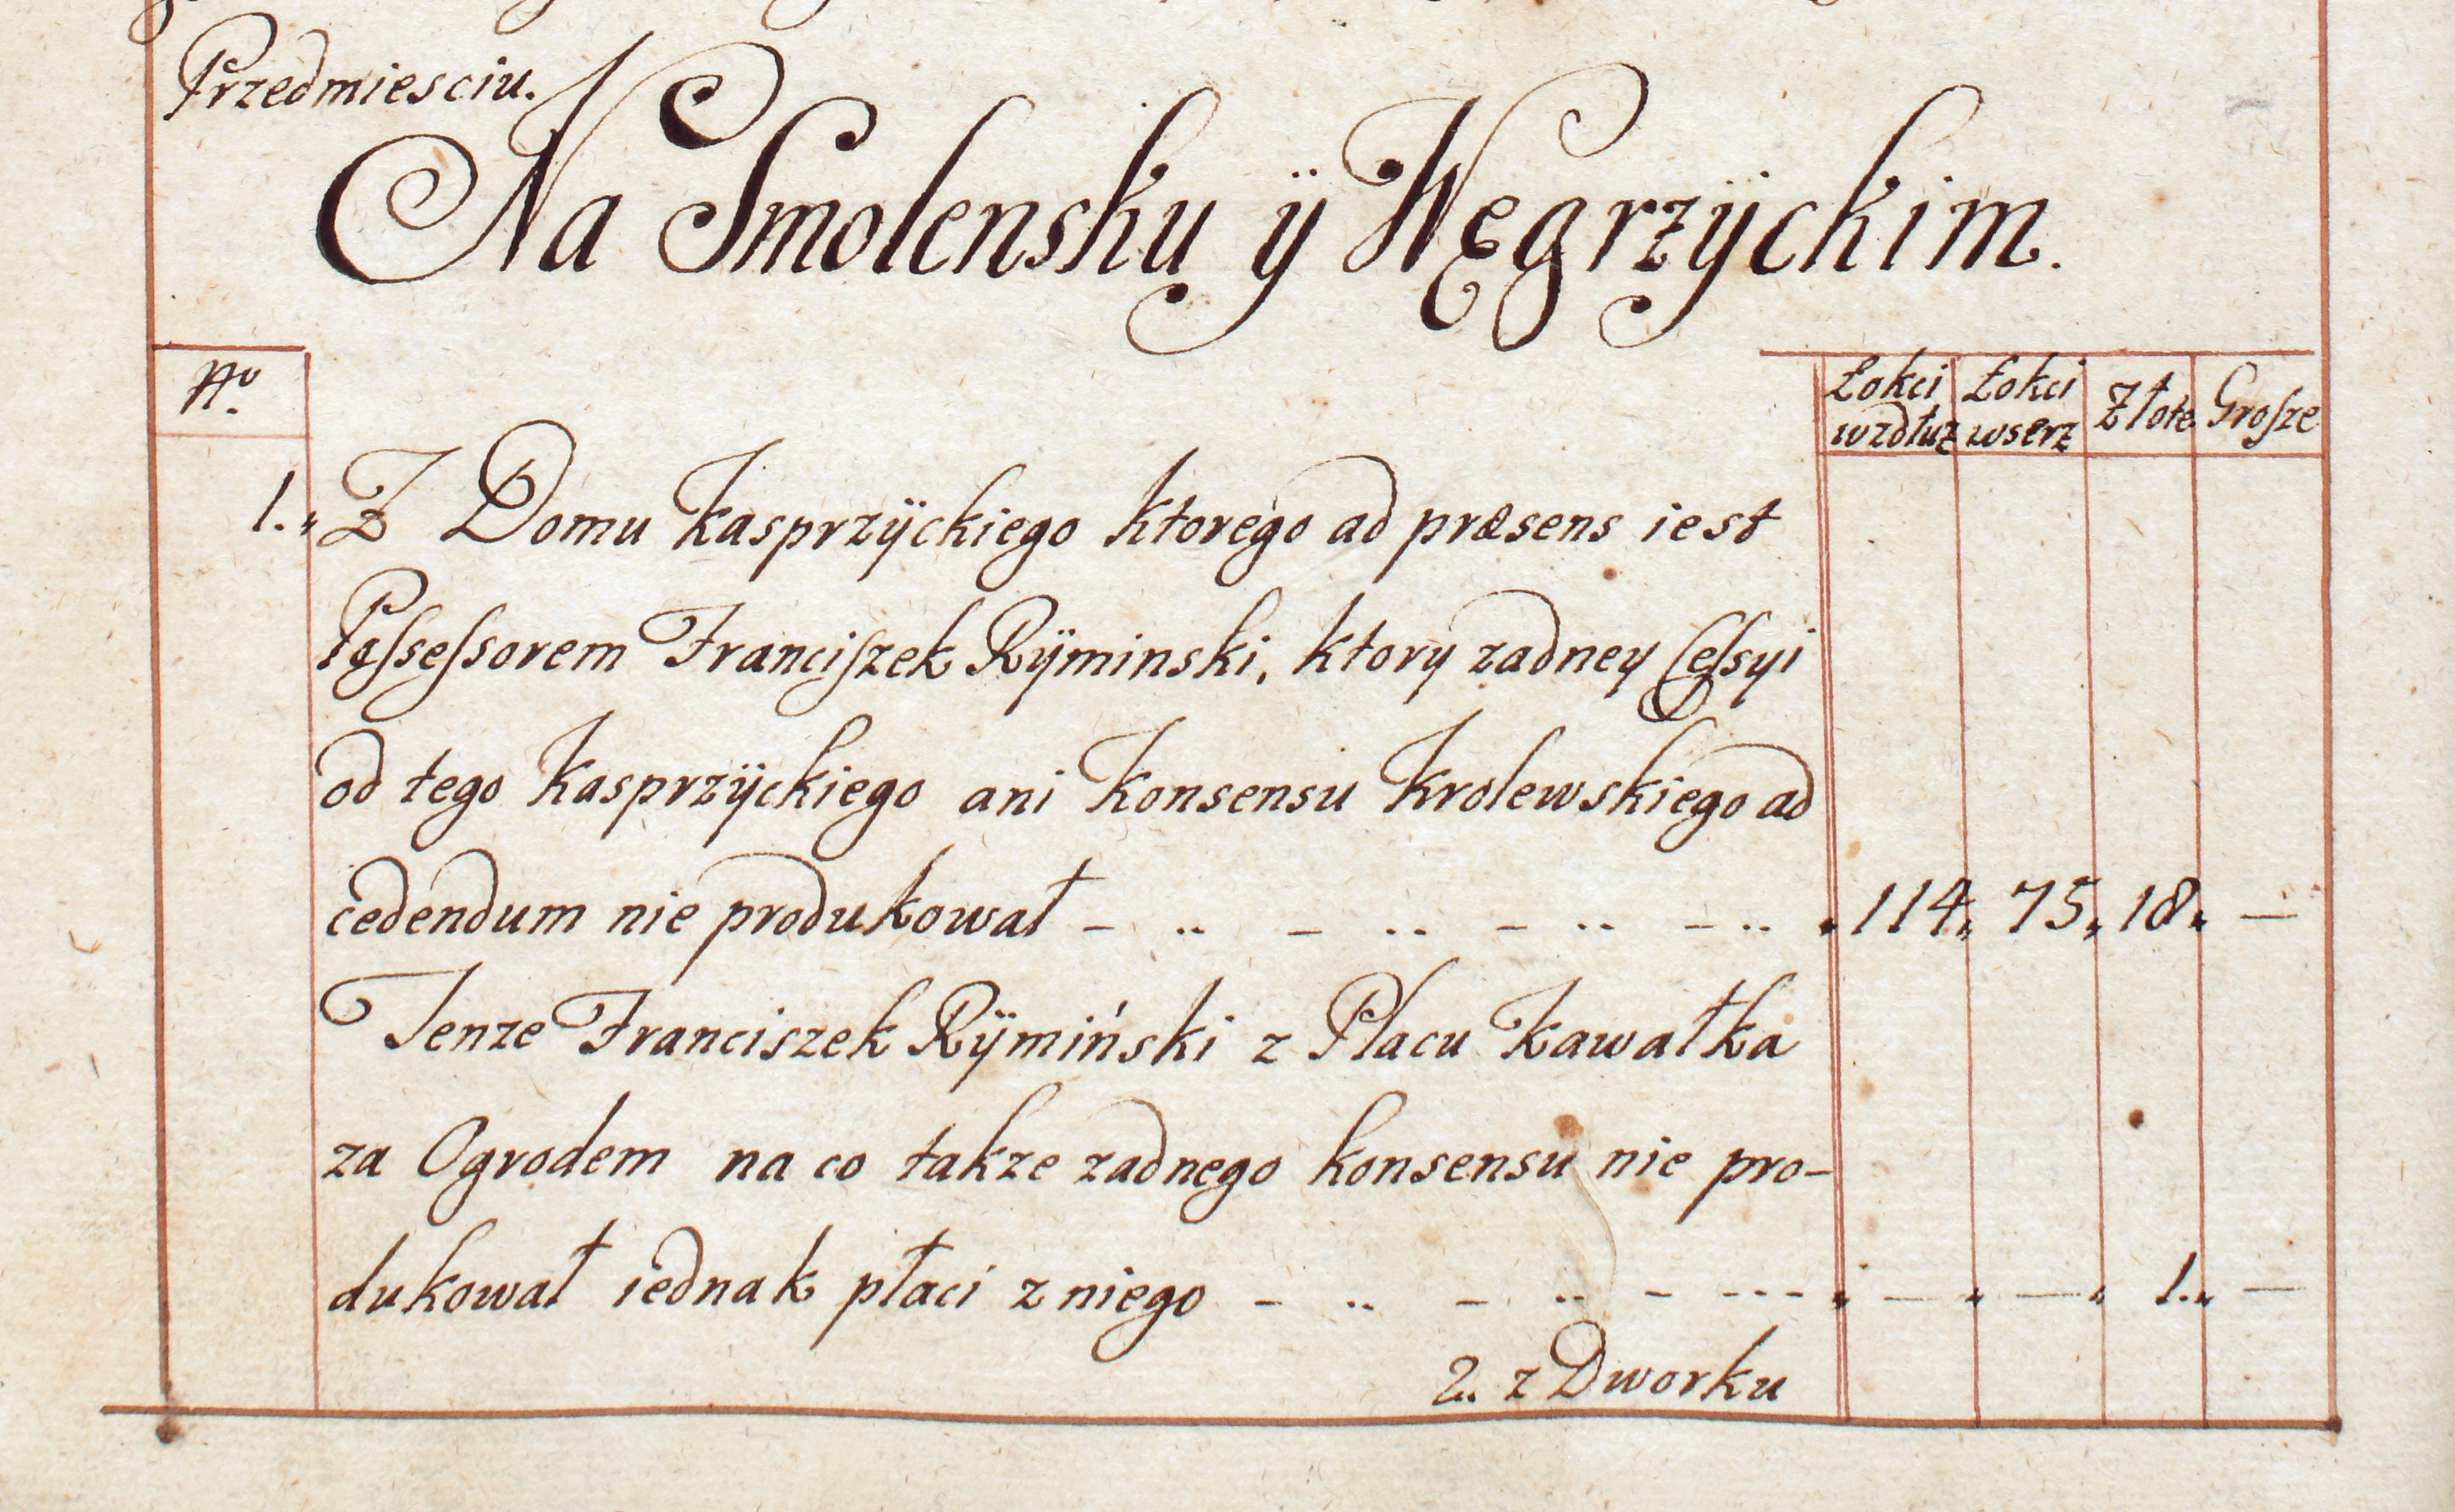 Przedmiesciu.
Na Smolensku ÿ Węgrzÿckim.
No. Łokci wzdłuz Łokci wserz Złote Groſze
1. Z Domu Kasprzÿckiego ktorego ad præsens iest
Poſseſsorem Franciſzek Rÿminski, ktory zadney Ceſsyi
od tego Kasprzÿckiego ani Konsensu Krolewskiego ad
cedendum nie produkował - .. - .. - .. - .. 114. 75. 18. —
Tenze Franciszek Rÿmiński z Placu Kawałka
za Ogrodem na co takze zadnego konsensu nie pro-
dukował iednak płaci z niego - .. - .. - --- — — 1. —
2. z Dworku